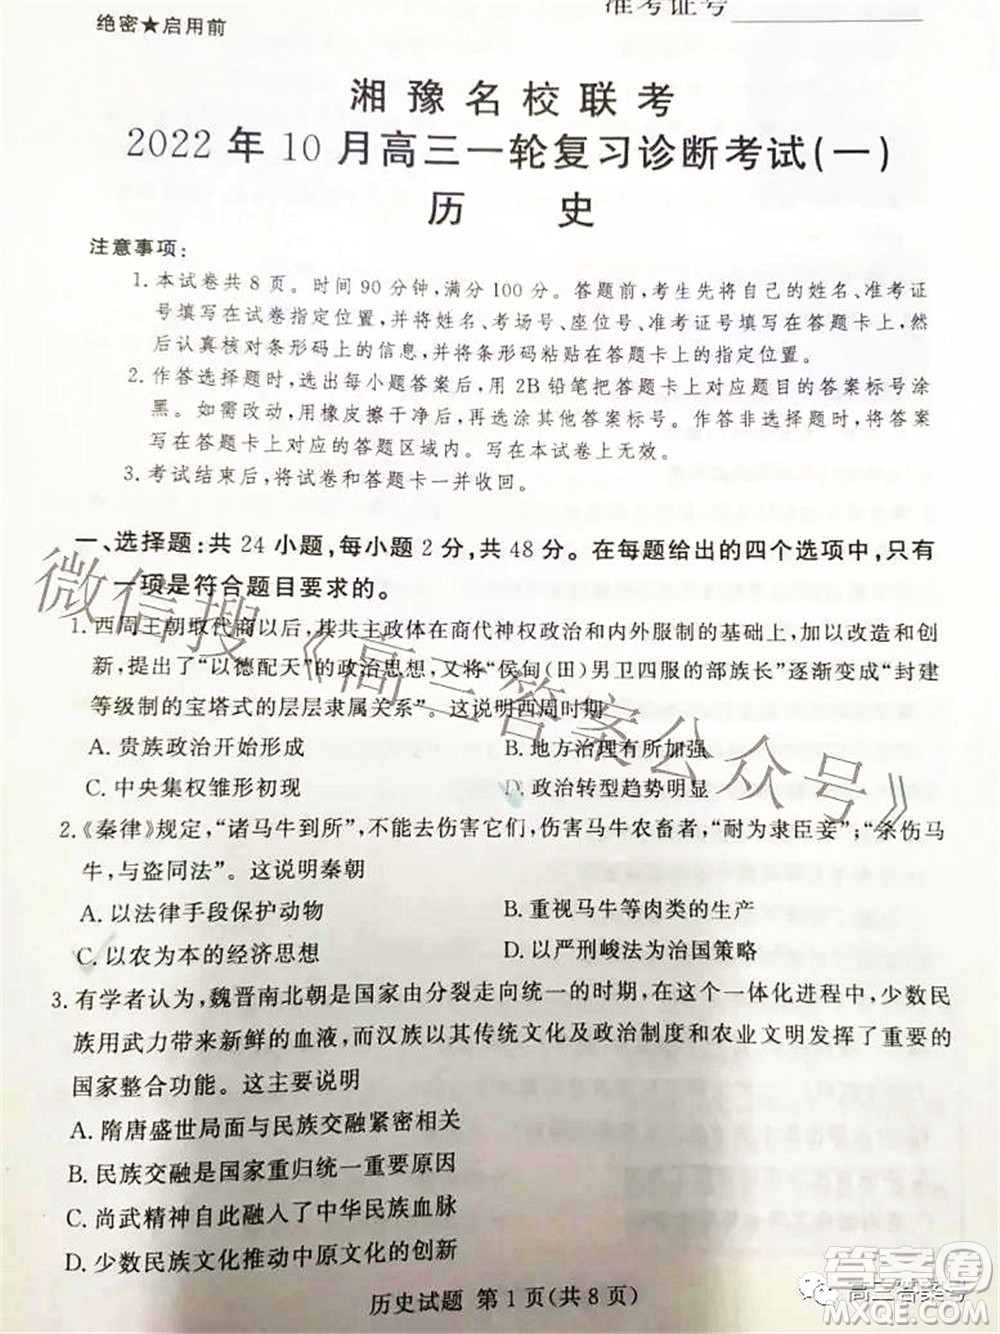 准考证号
绝密★启用前
湘豫名校联考
2022年10月高三一轮复习诊断考试(一)
历 史
注意事项:
1. 本试卷共8页。时间90分钟,满分100分。答题前,考生先将自己的姓名、准考证
号填写在试卷指定位置,并将姓名、考场号、座位号、准考证号填写在答题卡上,然
后认真核对条形码上的信息,并将条形码粘贴在答题卡上的指定位置。
2. 作答选择题时,选出每小题答案后,用2B铅笔把答题卡上对应题目的答案标号涂
黑。如需改动,用橡皮擦干净后,再选涂其他答案标号。作答非选择题时,将答案
写在答题卡上对应的答题区域内。写在本试卷上无效。
3. 考试结束后,将试卷和答题卡一并收回。
一、选择题:共24小题,每小题2分,共48分。在每题给出的四个选项中,只有
一项是符合题目要求的。
1. 西周王朝取代商以后,其共主政体在商代神权政治和内外服制的基础上,加以改造和创
新,提出了“以德配天”的政治思想,又将“侯甸(田)男卫四服的部族长”逐渐变成“封建
等级制的宝塔式的层层隶属关系”。这说明西周时期
A. 贵族政治开始形成 B. 地方治理有所加强
C. 中央集权雏形初现 D. 政治转型趋势明显
2.《秦律》规定,“诸马牛到所”,不能去伤害它们,伤害马牛农畜者,“耐为隶臣妾”;“杀伤马
牛,与盗同法”。这说明秦朝
A. 以法律手段保护动物 B. 重视马牛等肉类的生产
C. 以农为本的经济思想 D. 以严刑峻法为治国策略
3. 有学者认为,魏晋南北朝是国家由分裂走向统一的时期,在这个一体化进程中,少数民
族用武力带来新鲜的血液,而汉族以其传统文化及政治制度和农业文明发挥了重要的
国家整合功能。这主要说明
A. 隋唐盛世局面与民族交融紧密相关
B. 民族交融是国家重归统一重要原因
C. 尚武精神自此融入了中华民族血脉
D. 少数民族文化推动中原文化的创新
历史试题 第1页(共8页)
微信搜《高三答案公众号》
高三答案号
答案圈
MXQE.COM